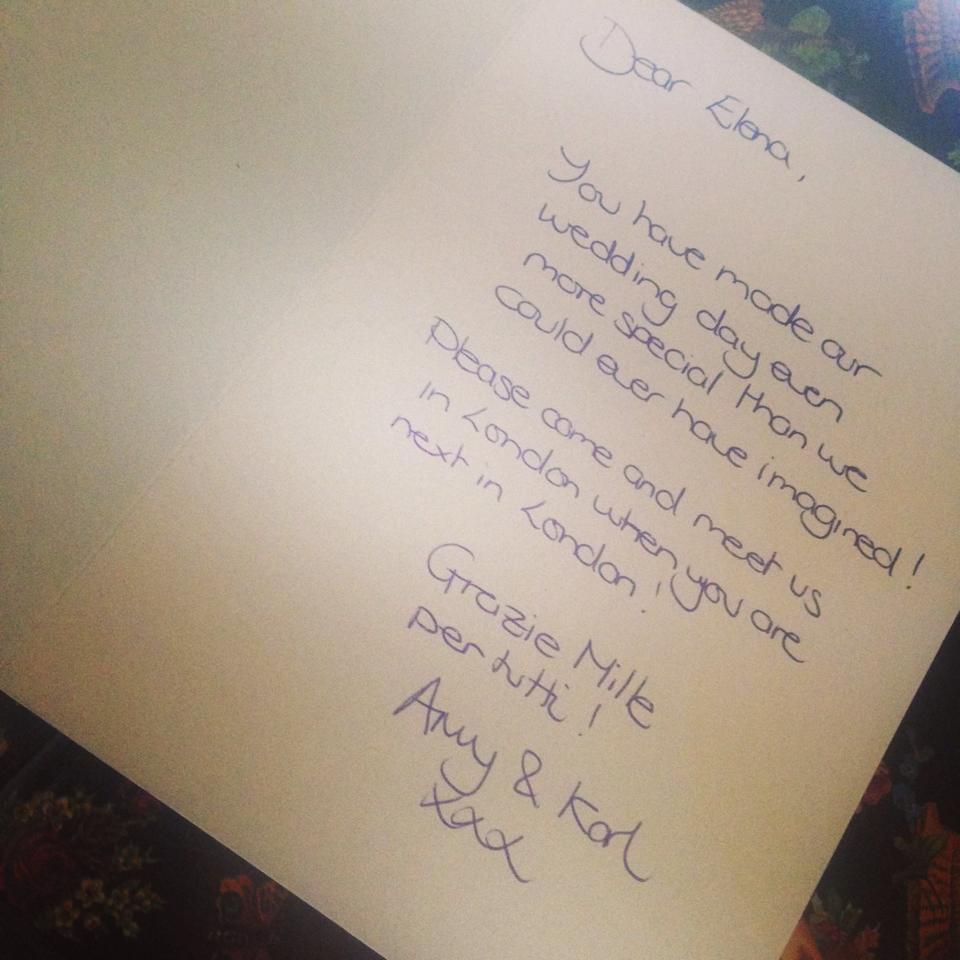 Dear Elena,
You have made our
wedding day even
more special than we
could ever have imagined!
Please come and meet us
in London when you are
next in London!
Grazie Mille
per tutti!
Amy & Karl
xxx